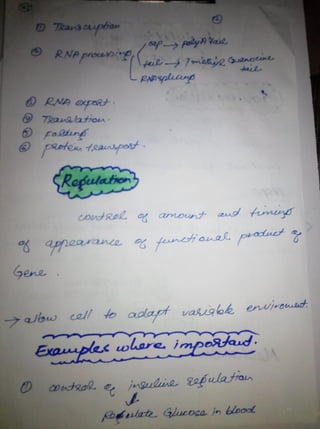 ① Transcription
② RNA processing
cap → poly A tail
tail → 7 methyl Guanosine tail
RNA splicing
③ RNA export.
④ Translation.
⑤ Folding
⑥ protein transport.
Regulation
control of amount and timing
of appearance of functional product of
Gene.
→ allow cell to adapt variable enviroment.
Examples where important.
① control of insuline regulation
↓
Regulate Glucose in blood